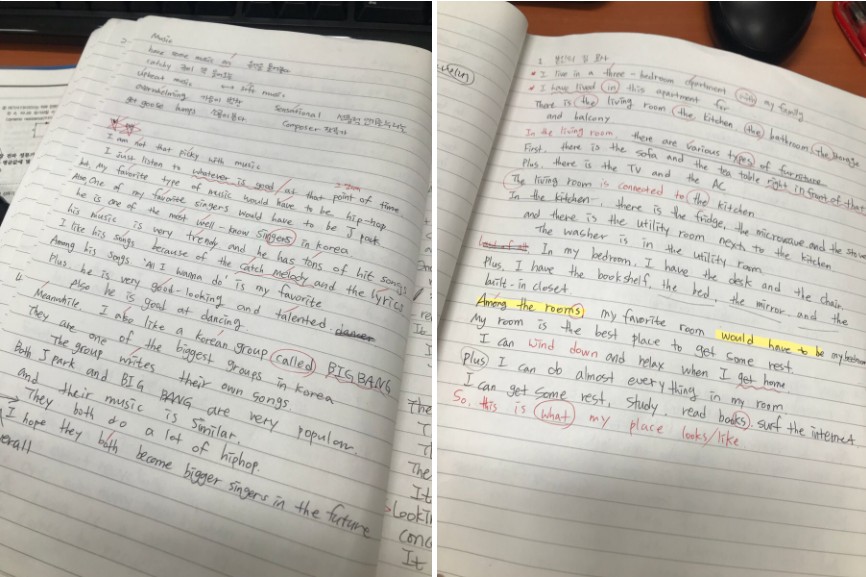 music
have some music on
catchy
upbeat music ↔ soft music
overwhelming
get goose bumps
Sensational
Composer
I am not that picky with music
I just listen to whatever is good at that point of time
my favorite type of music would have to be hip-hop
One of my favorite singers would have to be J park
he is one of the most well-know singers in korea.
his music is very trendy and he has tons of hit songs
I like his songs because of the catch melody and the lyrics
Among his songs 'All I wanna do' is my favorite
Plus, he is very good-looking and talented.
Also he is goat at dancing
4.
Meanwhile, I also like a korean group called BIGBANG
They are one of the biggest groups in korea
The group writes their own songs.
Both J park and BIG BANG are very popular.
and their music is similar.
They both do a lot of hiphop.
I hope they both become bigger singers in the future
erall
the
The
It
Looki
conc
It
1
* I live in a three-bedroom apartment with my family
* I have lived in this apartment for
There is the living room the kitchen, the bathroom the storage
and balcony
In the living room, there are various types of furniture
First, there is the sofa and the tea table right in front of that
Plus, there is the TV and the AC
The living room is connected to the kitchen
In the kitchen, there is the fridge, the microwave and the stove
and there is the utility room next to the kitchen
The washer is in the utility room.
In my bedroom, I have the desk and the chair
Plus, I have the bookshelf, the bed, the mirror, and the
built-in closet
Among the rooms my favorite room would have to be my bedroom
My room is the best place to get some rest.
I can wind down and relax when I get home.
Plus I can do almost everything in my room
I can get some rest, study, read books, surf the internet
So, this is what my place looks/like